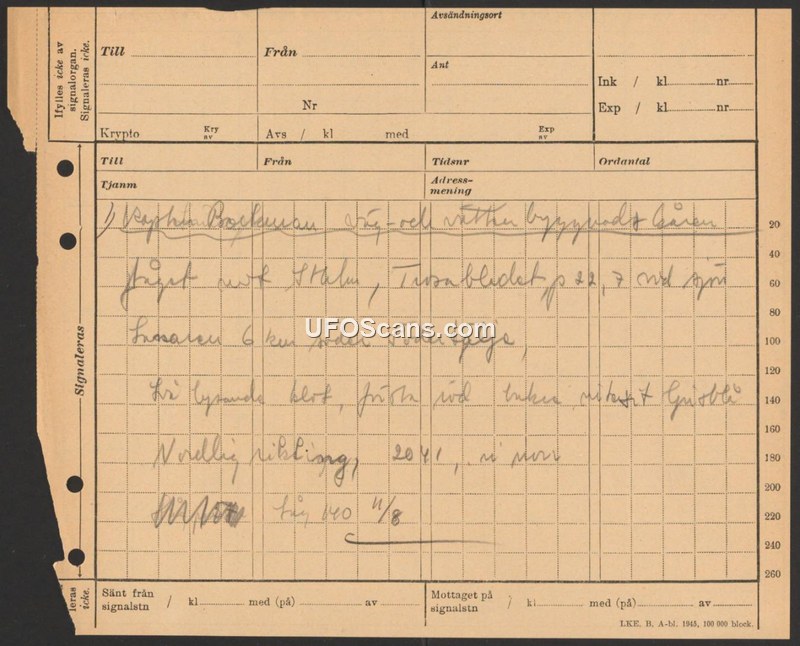 Ifylles icke av
signalorgan.
Signaleras icke.
Avsändningsort
Till
Från
Ant
Ink / kl nr
Nr
Exp / kl nr
Krypto Kry av
Avs / kl med Exp av
Till Från Tidsnr Ordantal
Tjänm Adress-
mening
1) Backman Väg- och byggnads
20
tåget mot Sthlm, 22,7 vid sjön
40
60
80
6 km söder Södertälje,
100
UFOScans.com
Signaleras
120
Två lysande klot, röd
140
160
Nordlig riktning, 2041,
180
200
11/8
220
240
260
leras
icke.
Sänt från
signalstn / kl med (på) av
Mottaget på
signalstn / kl med (på) av
LKE. B. A-bl. 1945, 100 000 block.